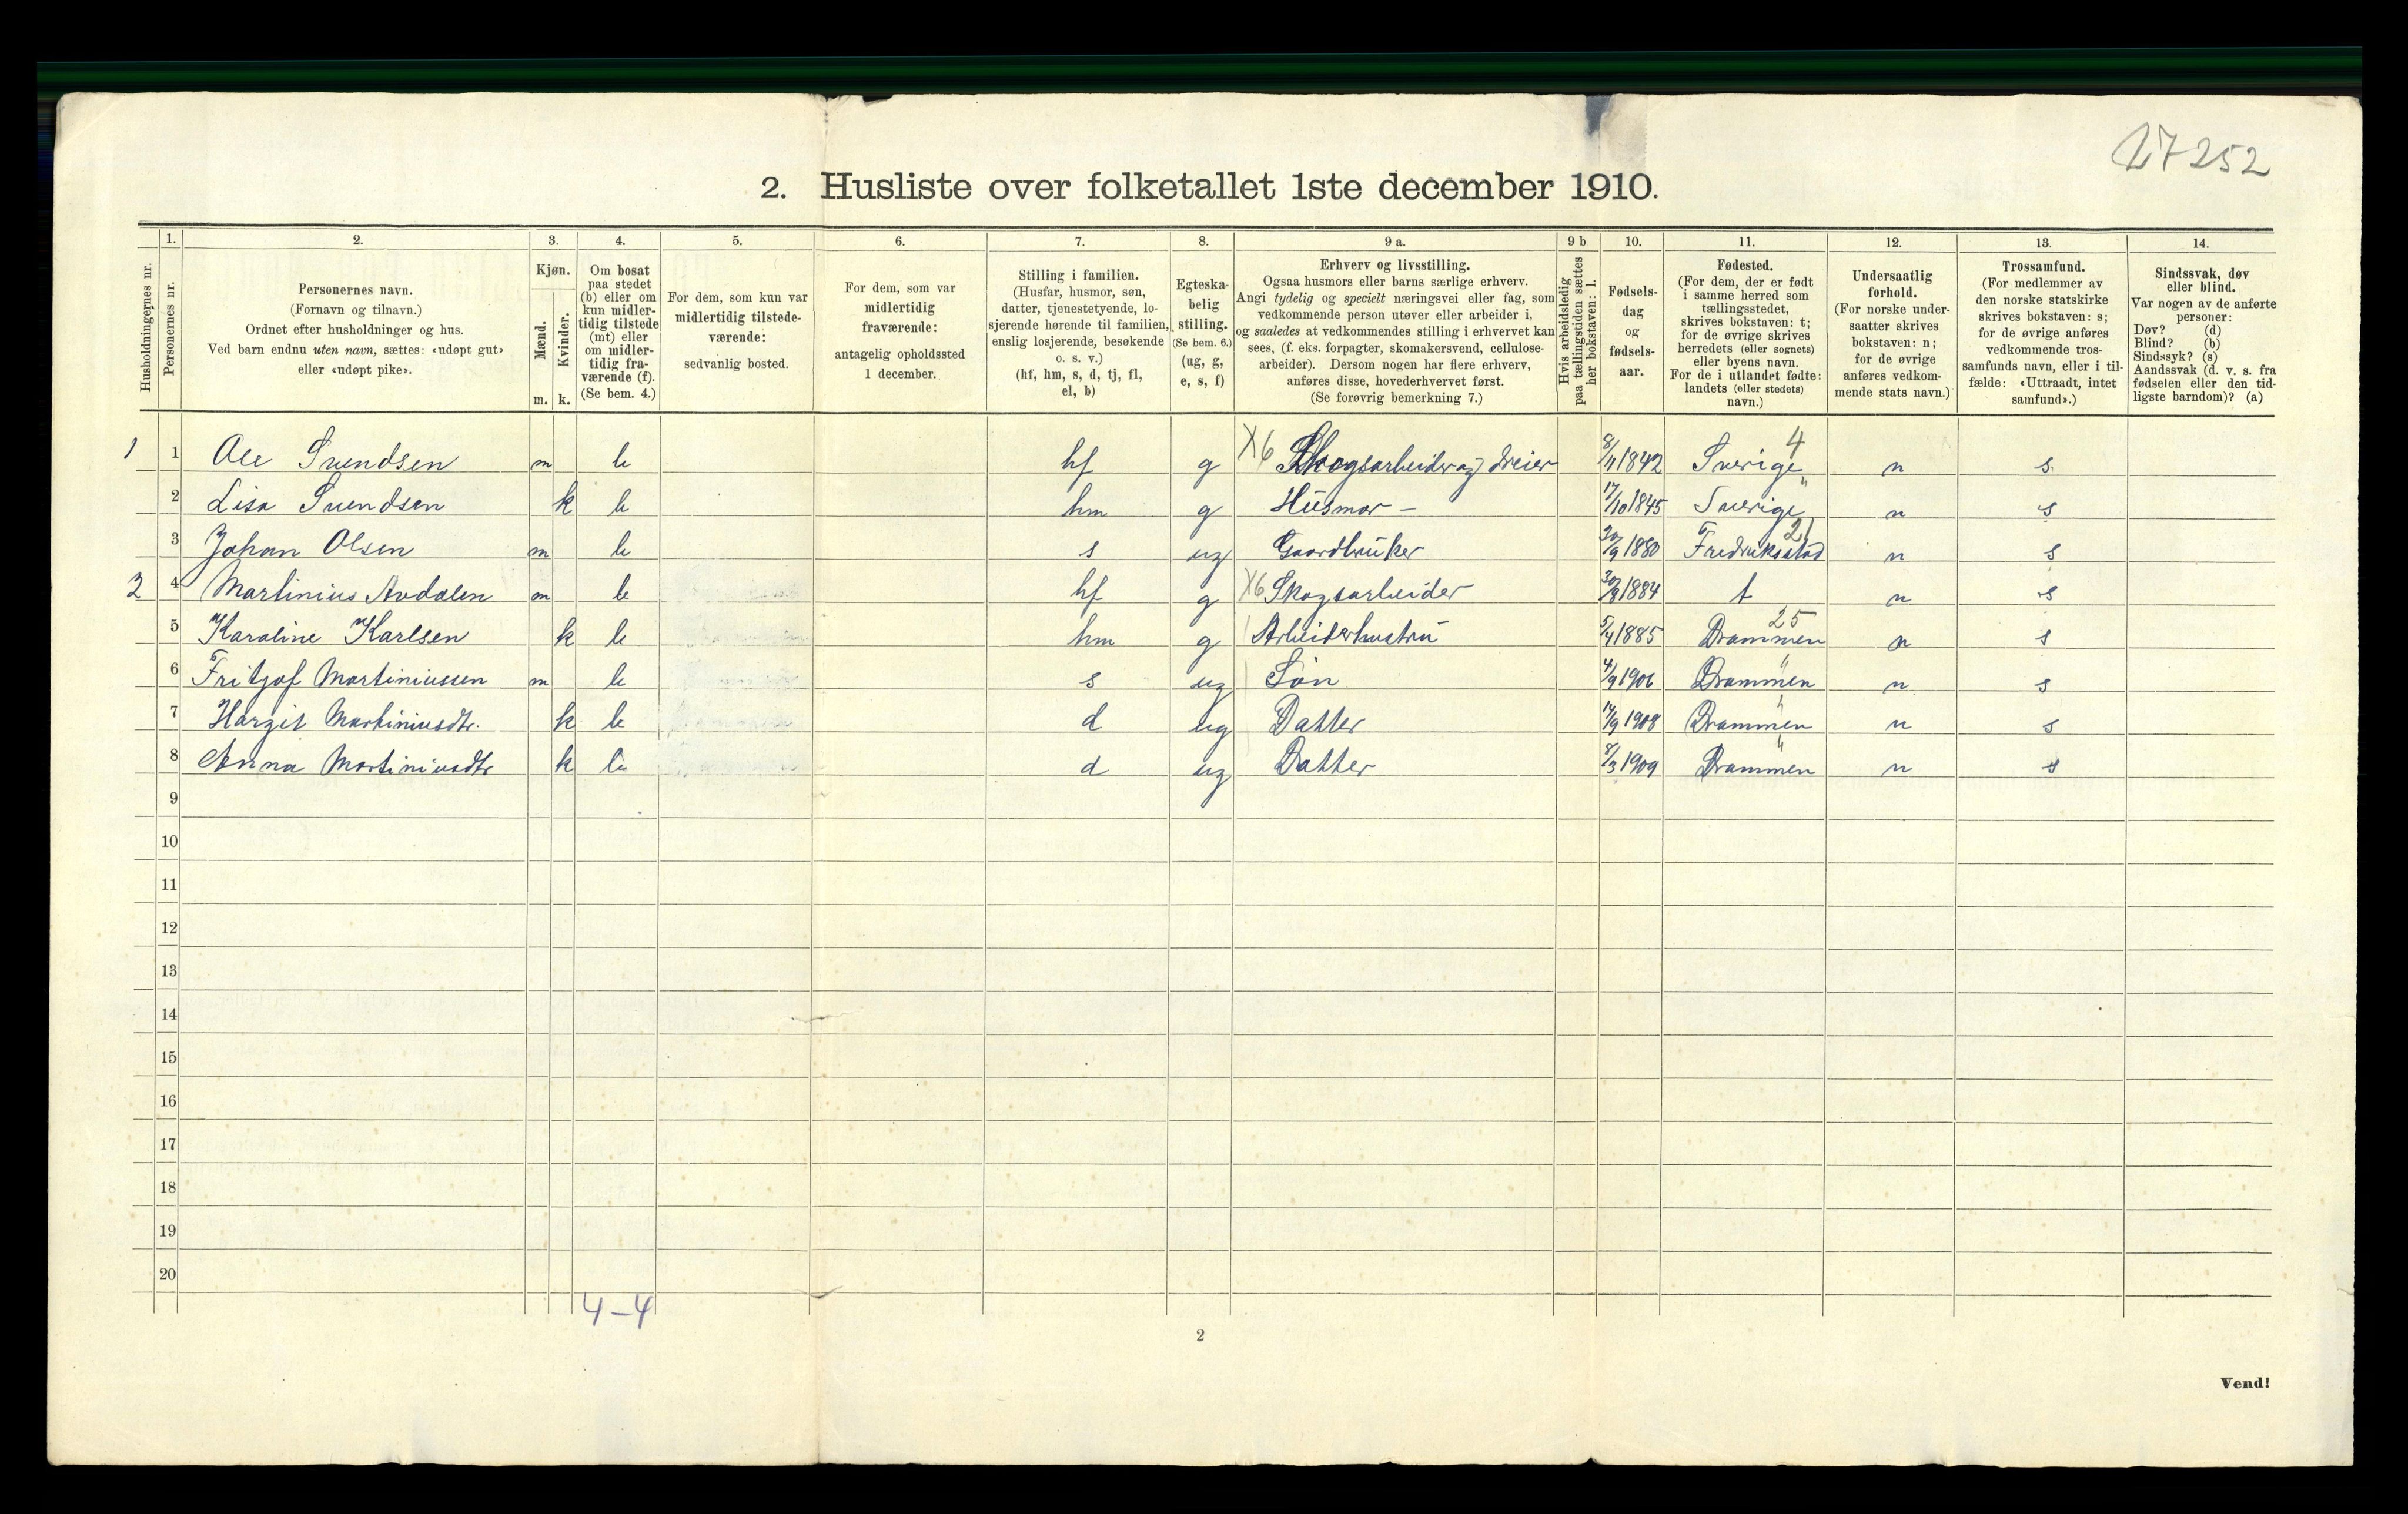 27252
2. Husliste over folketallet 1ste december 1910.
1. 2. 3. 4. 5. 6. 7. 8. 9 a. 9 b 10. 11. 12. 13. 14.
Husholdningernes nr.
Personernes nr.
Personernes navn.
(Fornavn og tilnavn.)
Ordnet efter husholdninger og hus.
Ved barn endnu uten navn, sættes: «udøpt gut»
eller «udøpt pike».
Kjøn.
Mænd.
Kvinder.
m. k.
Om bosat
paa stedet
(b) eller om
kun midler-
tidig tilstede
(mt) eller
om midler-
tidig fra-
værende (f).
(Se bem. 4.)
For dem, som kun var
midlertidig tilstede-
værende:
sedvanlig bosted.
For dem, som var
midlertidig
fraværende:
antagelig opholdssted
1 december.
Stilling i familien.
(Husfar, husmor, søn,
datter, tjenestetyende, lo-
sjerende hørende til familien,
enslig losjerende, besøkende
o. s. v.)
(hf, hm, s, d, tj, fl,
el, b)
Egteska-
belig
stilling.
(Se bem. 6.)
(ug, g,
e, s, f)
Erhverv og livsstilling.
Ogsaa husmors eller barns særlige erhverv.
Angi tydelig og specielt næringsvei eller fag, som
vedkommende person utøver eller arbeider i,
og saaledes at vedkommendes stilling i erhvervet kan
sees, (f. eks. forpagter, skomakersvend, cellulose-
arbeider). Dersom nogen har flere erhverv,
anføres disse, hovederhvervet først.
(Se forøvrig bemerkning 7.)
Hvis arbeidsledig
paa tællingstiden sættes
her bokstaven: l.
Fødsels-
dag
og
fødsels-
aar.
Fødested.
(For dem, der er født
i samme herred som
tællingsstedet,
skrives bokstaven: t;
for de øvrige skrives
herredets (eller sognets)
eller byens navn.
For de i utlandet fødte:
landets (eller stedets)
navn.)
Undersaatlig
forhold.
(For norske under-
saatter skrives
bokstaven: n;
for de øvrige
anføres vedkom-
mende stats navn.)
Trossamfund.
(For medlemmer av
den norske statskirke
skrives bokstaven: s;
for de øvrige anføres
vedkommende tros-
samfunds navn, eller i til-
fælde: «Uttraadt, intet
samfund».)
Sindssvak, døv
eller blind.
Var nogen av de anførte
personer:
Døv? (d)
Blind? (b)
Sindssyk? (s)
Aandssvak (d. v. s. fra
fødselen eller den tid-
ligste barndom)? (a)
1 1 Ole Svendsen m b hf g X6 Skogsarbeider og dreier 8/11 1842 Sverige 4 n s
2 Lisa Svendsen k b hm g Husmor – 17/10 1845 Sverige " n s
3 Johan Olsen m b s ug Gaardbruker 30/9 1880 Fredriksstad 21 n s
2 4 Martinius Avdalen m b hf g X6 Skogsarbeider 30/8 1884 t n s
5 Karoline Karlsen k b hm g Arbeiderhustru 5/4 1885 Drammen 25 n s
6 Fritjof Martiniussen m b s ug Søn 4/9 1906 Drammen " n s
7 Hargit Martiniusdtr. k b d ug Datter 14/9 1908 Drammen " n s
8 Anna Martiniusdtr k b d ug Datter 8/3 1909 Drammen " n s
9
10
11
12
13
14
15
16
17
18
19
20
4–4
2
Vend!